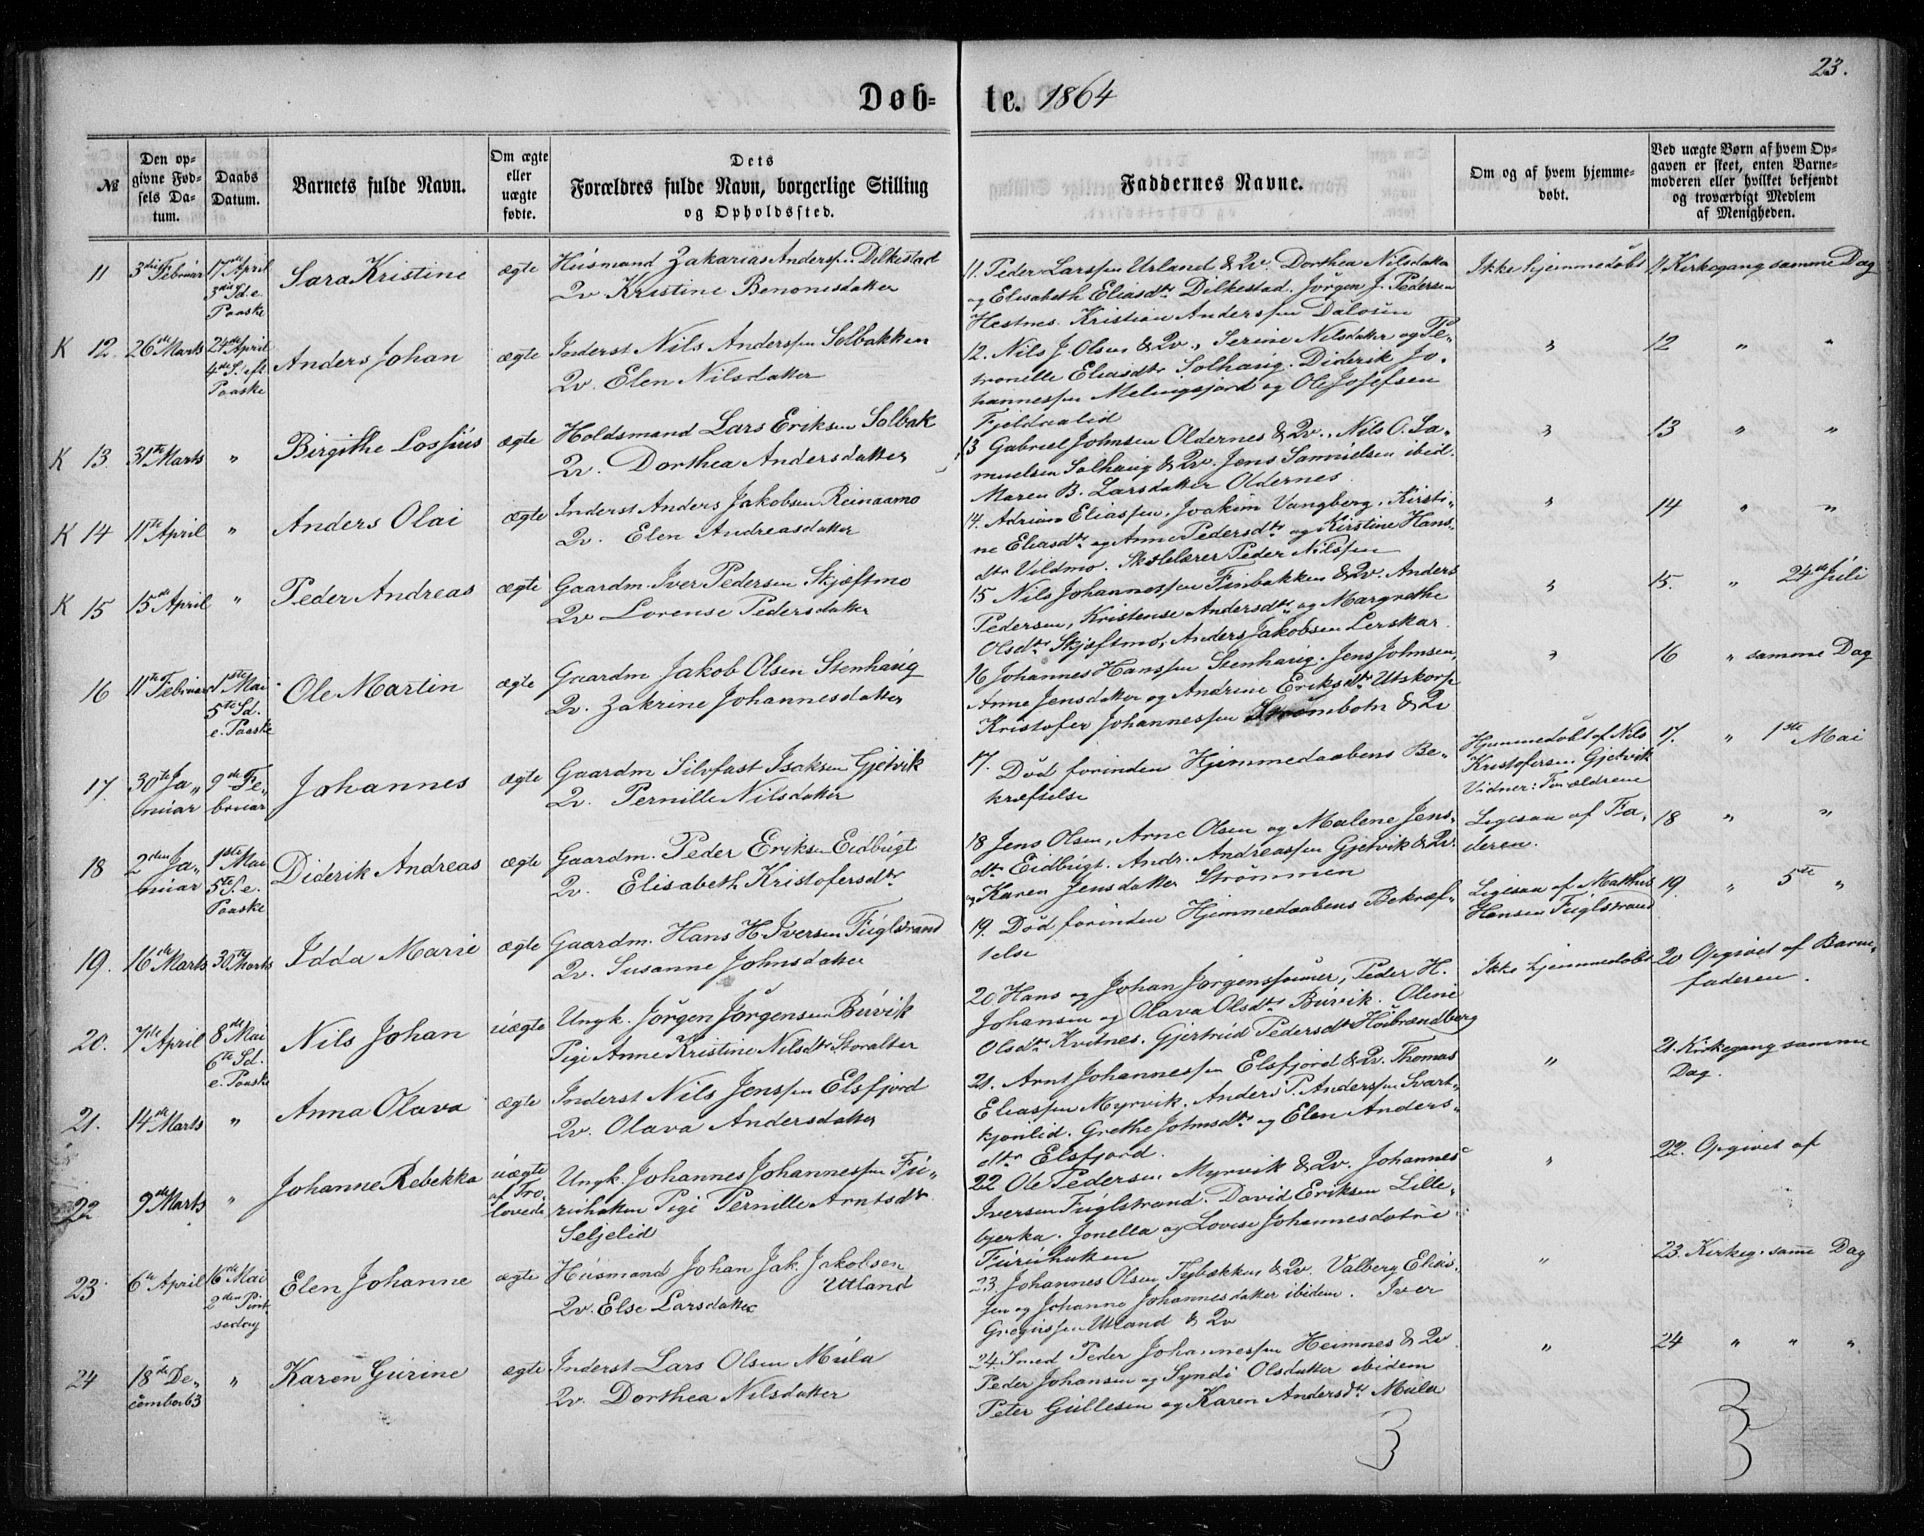 23.
Döbte. 1864
№
Den opgivne Fødsels Datum.
Daabs Datum.
Barnets fulde Navn.
Om ægte eller uægte fødte.
Dets Forældres fulde Navn, borgerlige Stilling og Opholdssted.
Faddernes Navne.
Om og af hvem hjemmedøbt.
Ved uægte Børn af hvem Opgaven er skeet, enten Barnemoderen eller hvilket bekjendt og troværdigt Medlem af Menigheden.
11 3die Februar 17de April 3die Sd. e. Paaske Sara Kristine ægte Husmand Zakarias Anderssen Dilkestad
Qv Kristine Benonisdatter
11. Peder Larssen Utland & Qv. Dorthea Nilsdatter
og Elisabeth Eliasdtr Dilkestad. Jørgen J. Pedersen
Hestnes. Kristian Anderssen Dalosen
Ikke hjemmedøbt
11 Kirkegang samme Dag
K 12. 26de Marts 24de April 4de S. eft Paaske Anders Johan ægte Inderst Nils Anderssen Solbakken
Qv. Elen Nilsdatter
12. Nils J. Olsen & Qv., Serine Nilsdatter og Pe-
tronelle Eliasdtr Solhaug. Diderik Jo-
hannessen Melingsjord og Ole Josefsen
Fjeldaalid
"
12 " "
K 13 31te Marts " Birgithe Lossius ægte Holdsmand Lars Eriksen Solbak
Qv. Dorthea Andersdatter
13 Gabriel Johnsen Oldernes & Qv., Nils O. Sa-
muelsen Solhaug & Qv. Jens Samuelsen ibid.
Maren B. Larsdatter Oldernes.
"
13 " "
K 14 11te April " Anders Olai ægte Inderst Anders Jakobsen Reinaamo
Qv. Elen Andreasdatter
14. Adrian Eliassen, Joakim Vangberg, Kirsti-
ne Eliasdtr og Anne Pedersdtr og Kirstine Hans-
dtr Vildmo. Skolelærer Peder Nilssen
"
14 " "
K 15 15de April " Peder Andreas ægte Gaardm. Iver Pedersen Skjæftmo
Qv Lorense Pedersdatter
15 Nils Johannessen Finbakken & Qv. Anders
Pedersen, Kristense Andersdtr og Margrethe
Olsdtr Skjæftmo, Anders Jakobsen Lerskar.
"
15. " 24de Juli
16 11te Februar 1ste Mai 5te Sd. e. Paaske Ole Martin ægte Gaardm Jakob Olsen Stenhaug
Qv. Zakrine Johannesdatter
16 Johannes Hanssen Stenhaug. Jens Johnsen,
Anne Jensdatter og Andrine Eriksdtr Utskorp
Kristofer Johannessen Strømbotn & Qv
"
16 " samme Dag
17. 30te Januar 9de Februar Johannes ægte Gaardm Silvfast Isaksen Gjetvik
Qv. Pernille Nilsdatter
17. Død forinden Hjemmedaabens Be-
kræftelse
Hjemmedøbt af Nils
Kristofersen Gjetvik
Vidner: Forældrene
17. " 1ste Mai
18 2den Januar 1ste Mai 5te S. e. Paaske Diderik Andreas ægte Gaardm. Peder Eriksen Eidbugt
Qv. Elisabeth Kristofersdtr
18 Jens Olsen, Arne Olsen og Malene Jens-
dtr Eidbugt. Andr. Andreassen Gjetvik & Qv.
og Karen Jensdatter Strømmen
Ligesaa af Fa-
deren.
18 " "
19. 16de Marts 30te Marts Idda Marie ægte Gaardm. Hans H. Iversen Fuglstrand
Qv. Susanne Johnsdatter
19. Død forinden Hjemmedaabens Bekræf-
telse
Ligesaa af Mathis
Hansen Fuglstrand
19. " 5te "
20. 7de April 8de Mai 6te Sd. e. Paaske Nils Johan uægte Ungk. Jørgen Jørgensen Buvik
Pige Anne Kristine Nilsdtr Storalter
20 Hans og Johan Jørgenssønner, Peder H.
Johansen og Olava Olsdtr Buvik. Oline
Olsdtr Kvitnes. Gjertrud Pedersdtr Høibrændberg
Ikke hjemmedøbt
20 Opgivet af Barne-
faderen.
21. 14de Marts " Anna Olava ægte Inderst Nils Jenssen Elsfjord
Qv. Olava Andersdatter
21. Arnt Johannessen Elsfjord & Qv. Thomas
Eliassen Myrvik. Anders P. Anderssen Svart-
kjønlid. Grethe Johnsdtr og Elen Anders-
dtr Elsfjord.
"
21. Kirkegang samme
Dag.
22 9de Marts " Johanne Rebekka uægte af Trolovede Ungk. Johannes Johannessen Fu-
ruhaken Pige Pernille Arntsdtr
Seljelid
22 Ole Pedersen Myrvik & Qv. Johannes
Iversen Fuglstrand. David Eriksen Lille-
bjerka. Jonella og Lovise Johannesdøtre
Furuhuken
"
22. Opgivet af
23. 6te April 16de Mai 2den Pintsedag Elen Johanne ægte Husmand Johan Jak. Jakobsen
Utland
Qv. Else Larsdatter
23 Johannes Olsen Tybækken & Qv. Valberg Elias-
sen og Johanne Johannesdatter ibidem. Iver
Gregussen Utland & Qv
"
23. Kirkeg. samme Dag
24 18de December 63 " Karen Gurine ægte Inderst Lars Olsen Mula
Qv. Dorthea Nilsdatter
24. Smed Peder Johannessen Heimnes & Qv
Peder Johansen og Syndi Olsdatter ibidem
Peter Gullesen og Karen Andersdtr Mula
"
24 " " "
3
3
3